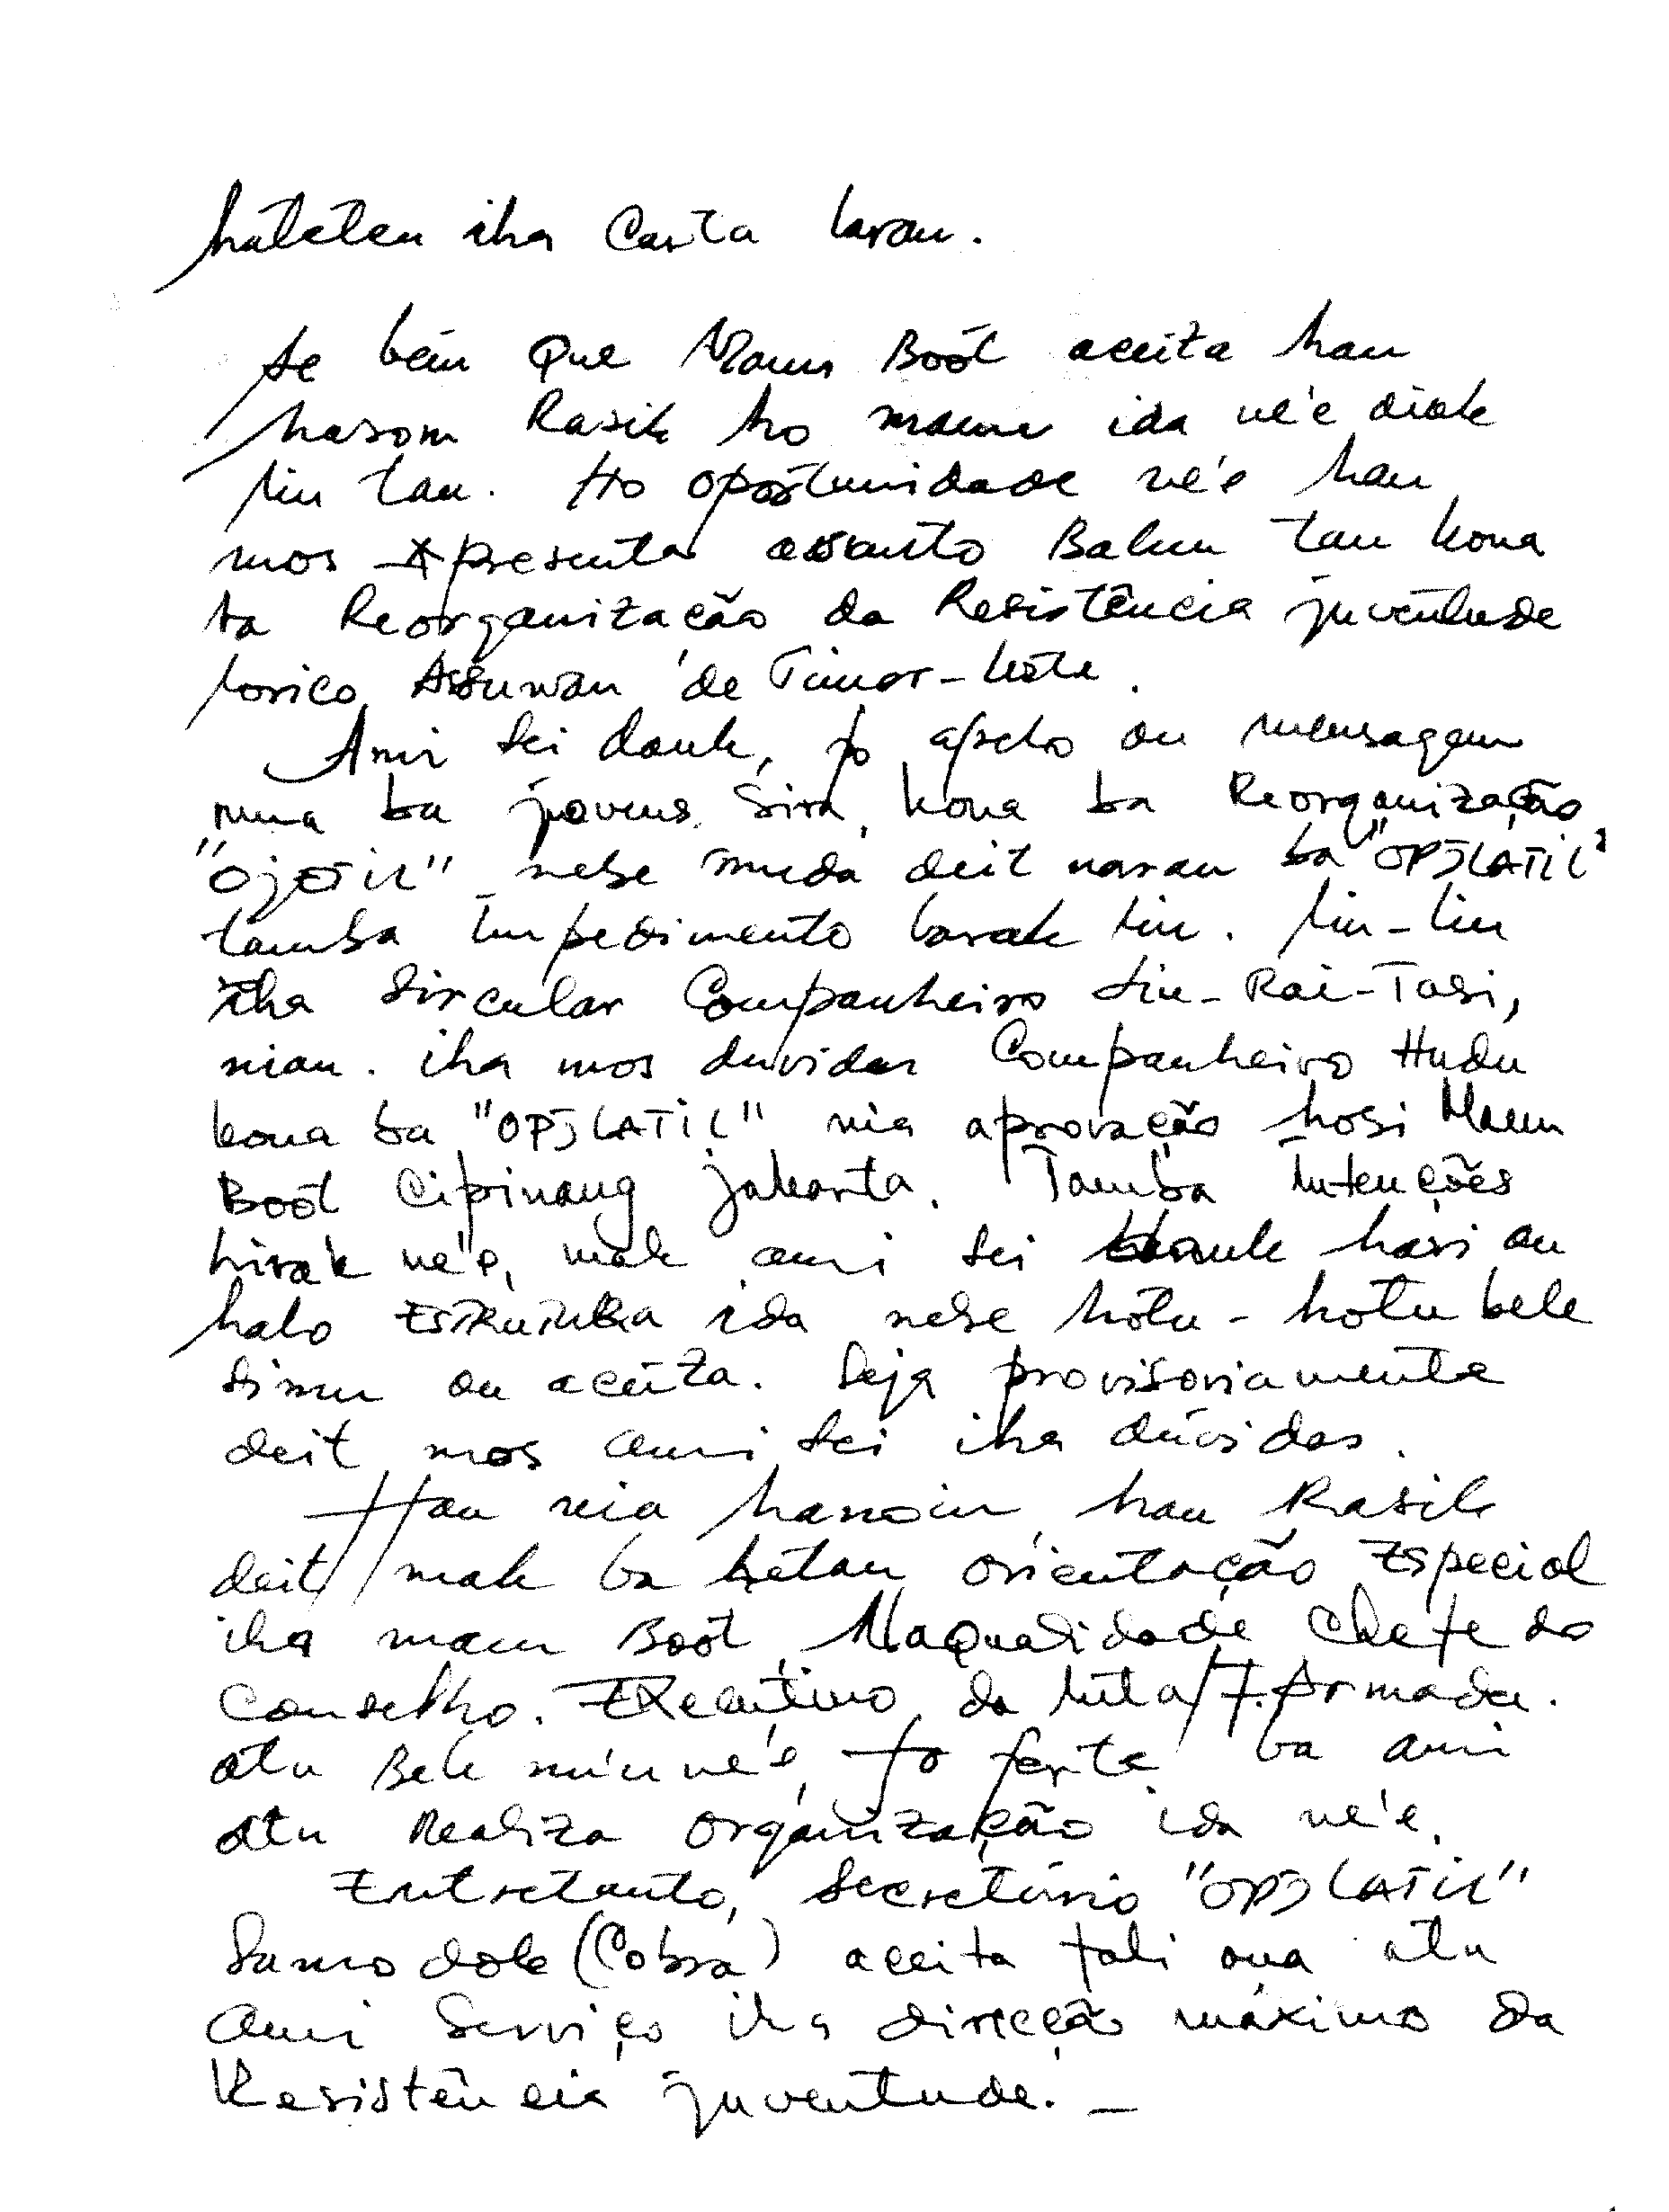 hateten iha Carta laran.
Se bém que Maun Boót aceita hau
hasoru Rasik ho maun ida ne'e diak
liu tan. Ho oportunidade ne'e hau
mos Apresenta assunto Balun tan kona
ba Reorganização da Resistência juventude
lorico Assuwan de Timor-Leste.
Ami sei dauk, fo apelo ou mensagem
ruma ba jovens sira, kona ba Reorganização
"OJETIL" nebe muda deit naran ba "OPJLATIL"
tamba Impedimento barak liu. liu-liu
iha Sircular Companheiro Liu-Rai-Tasi,
nian. iha mos duvidas Companheiro Hudu
kona ba "OPJLATIL" nia aprovação hosi Maun
Boót Cipinang Jakarta. Tamba Intenções
hirak ne'e, mak ami sei dauk hari ou
halo Estrutura ida nebe hotu-hotu bele
simu ou aceita. Seja provisoriamente
deit mos ami sei iha dúvidas.
Hau nia hanoin, hau Rasik
deit mak ba hetan orientação Especial
iha maun Boót, Naqualidade Chefe do
Conselho Executivo da luta/F. Armada.
atu Bele ni'u ne'e, fo forte ba ami
atu Realiza organização ida ne'e.
Entretanto, Secretário "OPJLATIL"
Samo dok (Cobra) aceita tali ona atu
ami Serviço iha direcção máximo da
Resistência juventude. _